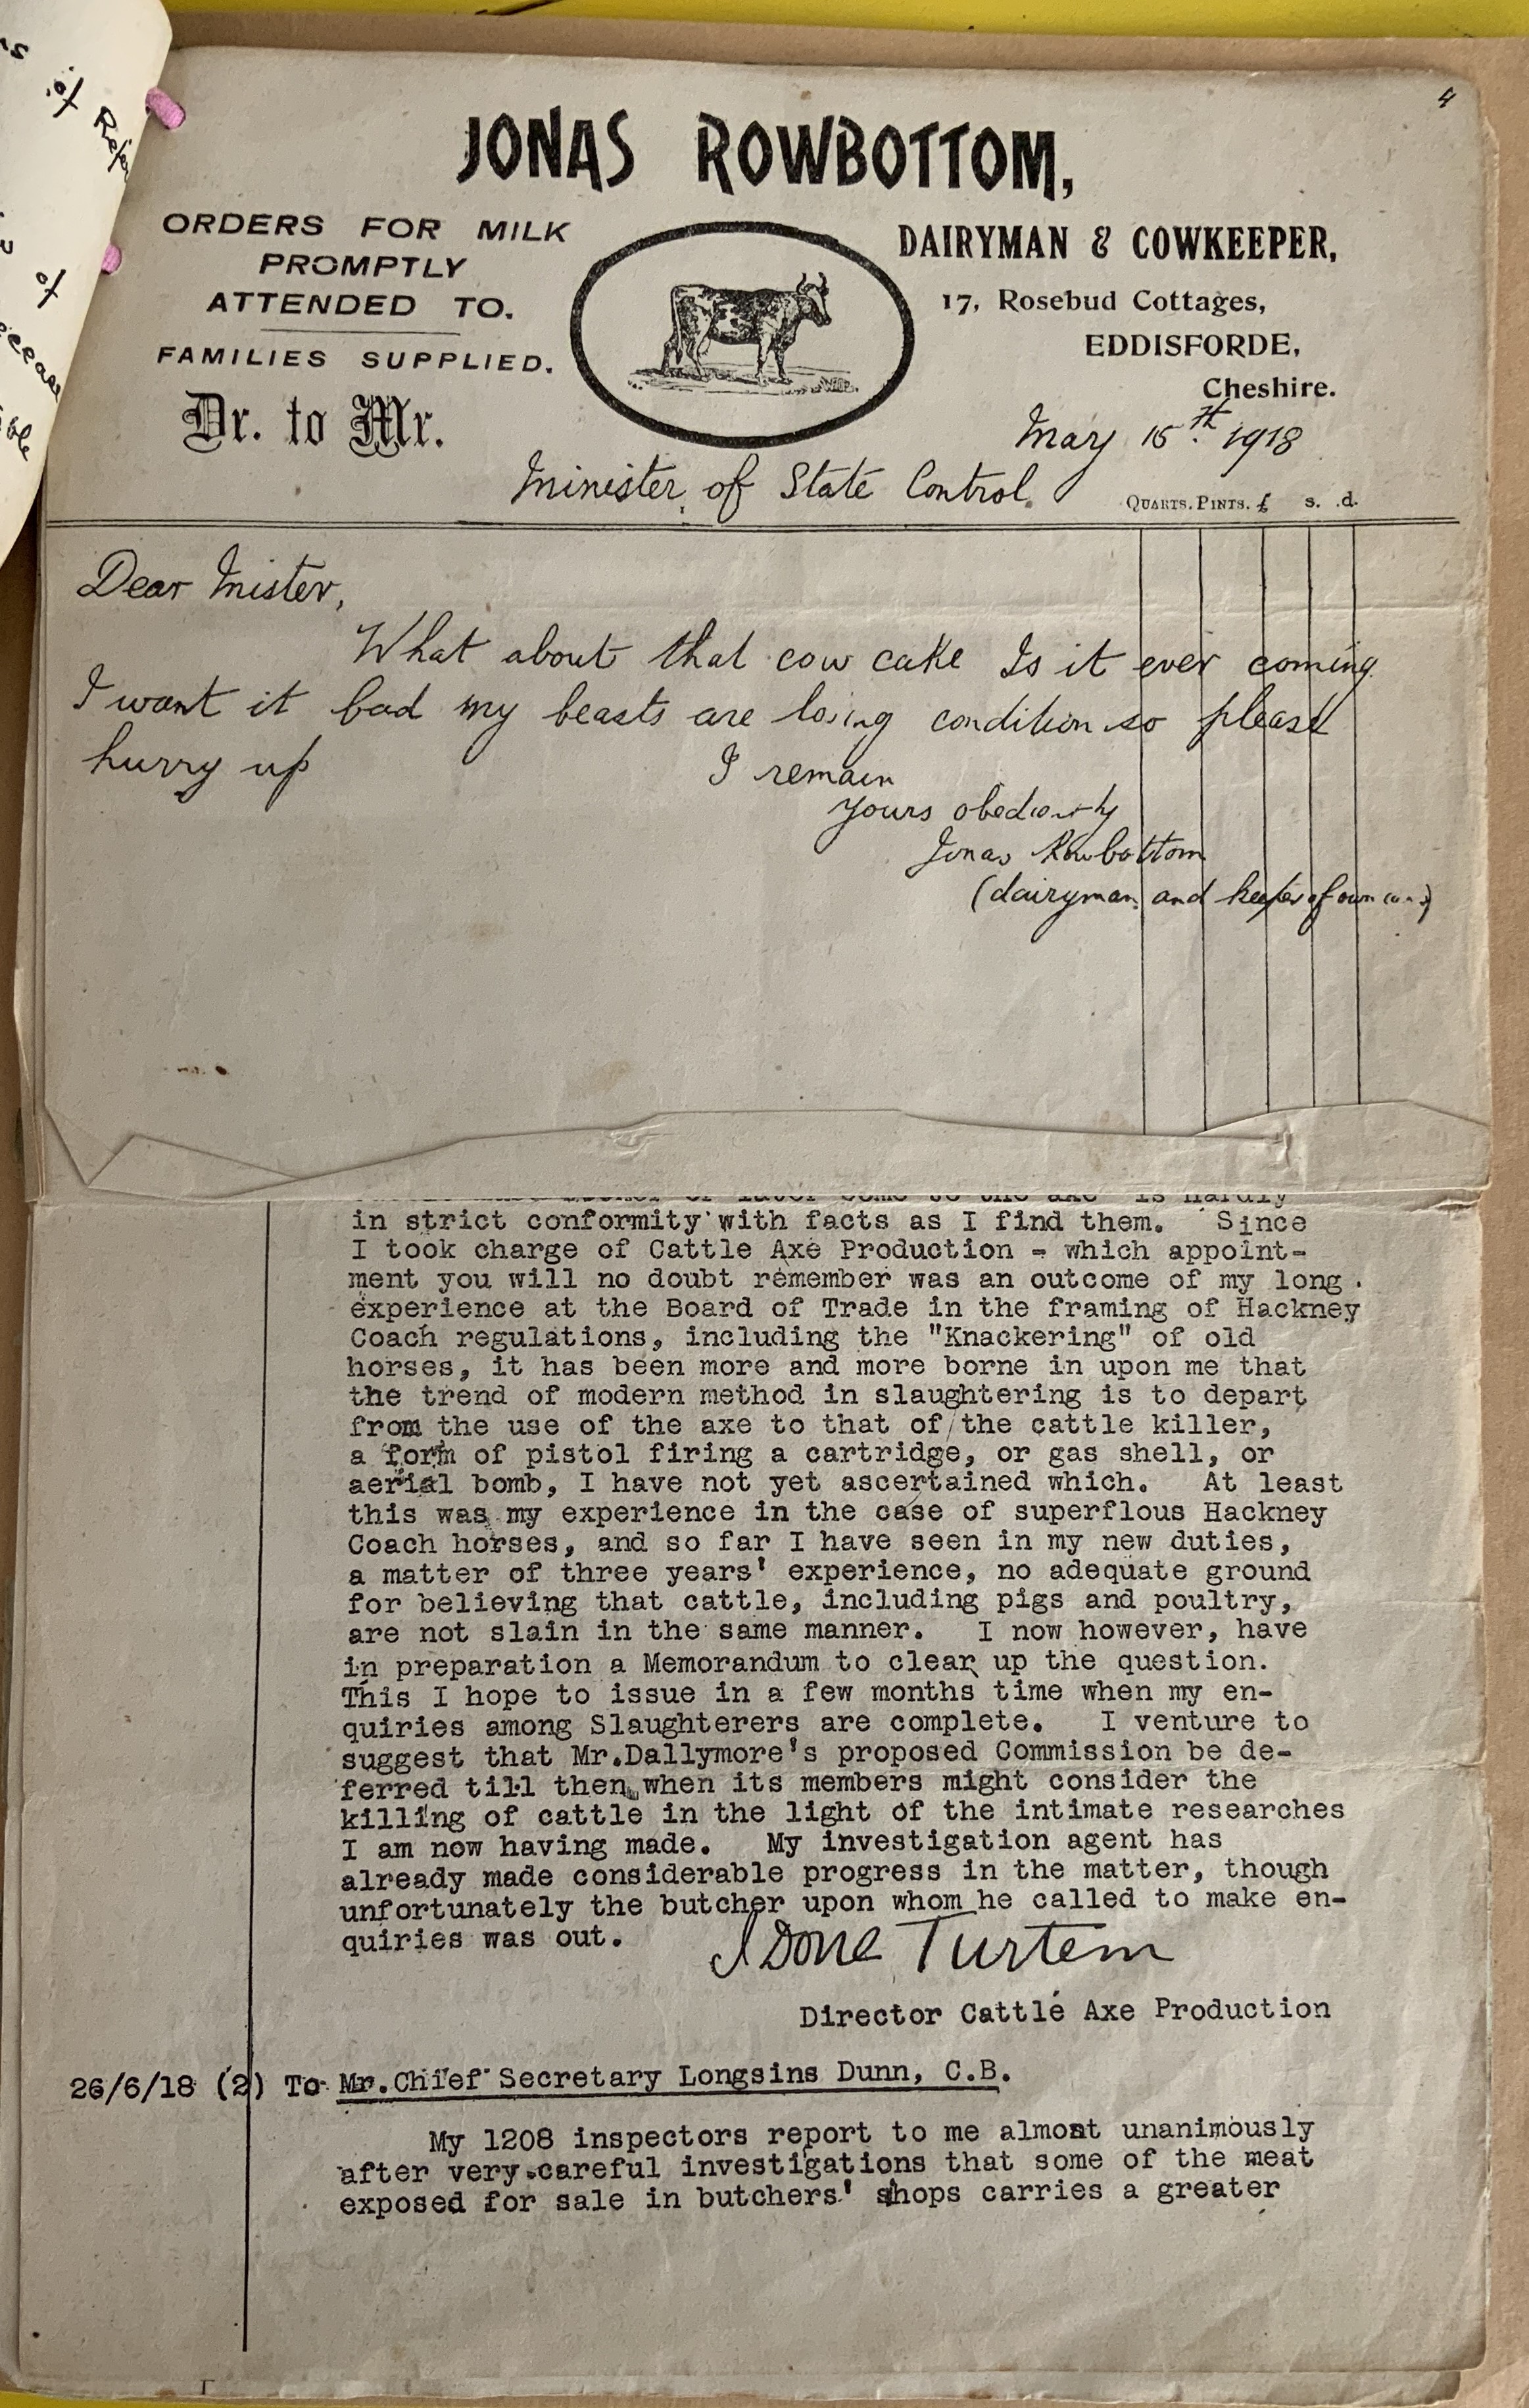 4
JONAS ROWBOTTOM,
ORDERS FOR MILK
PROMPTLY
ATTENDED TO.
FAMILIES SUPPLIED.
Dr. to Mr.
DAIRYMAN & COWKEEPER,
17, Rosebud Cottages,
EDDISFORDE,
Cheshire.
May 15th 1918
Minister of State Control.
QUARTS. PINTS. £ s. d.
Dear Mister,
What about that cow cake Is it ever coming
I want it bad my beasts are losing condition so please
hurry up
I remain
Yours obediently
Jonas Rowbottom
(dairyman and keeper of own cows)
sooner or later come to the axe is hardly
in strict conformity with facts as I find them. Since
I took charge of Cattle Axe Production - which appoint-
ment you will no doubt remember was an outcome of my long
experience at the Board of Trade in the framing of Hackney
Coach regulations, including the "Knackering" of old
horses, it has been more and more borne in upon me that
the trend of modern method in slaughtering is to depart
from the use of the axe to that of the cattle killer,
a form of pistol firing a cartridge, or gas shell, or
aerial bomb, I have not yet ascertained which. At least
this was my experience in the case of superflous Hackney
Coach horses, and so far I have seen in my new duties,
a matter of three years' experience, no adequate ground
for believing that cattle, including pigs and poultry,
are not slain in the same manner. I now however, have
in preparation a Memorandum to clear up the question.
This I hope to issue in a few months time when my en-
quiries among Slaughterers are complete. I venture to
suggest that Mr.Dallymore's proposed Commission be de-
ferred till then when its members might consider the
killing of cattle in the light of the intimate researches
I am now having made. My investigation agent has
already made considerable progress in the matter, though
unfortunately the butcher upon whom he called to make en-
quiries was out.
I Done Turtem
Director Cattle Axe Production
26/6/18 (2) To Mr.Chief Secretary Longsins Dunn, C.B.
My 1208 inspectors report to me almost unanimously
after very careful investigations that some of the meat
exposed for sale in butchers' shops carries a greater